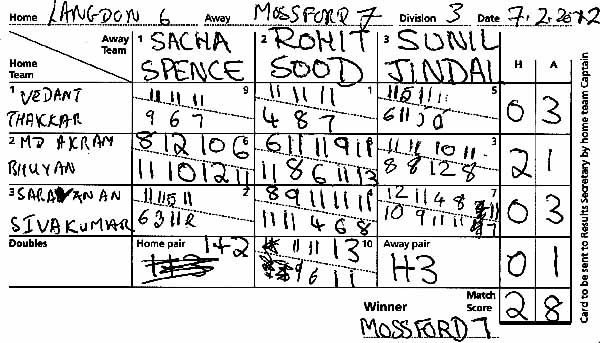 Home LANGDON 6 Away MOSSFORD 7 Division 3 Date 7.2.2022
Away Team 1 SACHA SPENCE 2 ROHIT SOOD 3 SUNIL JINDAL H A
Home Team
1 VEDANT 11 11 11 9 11 11 11 1 11 5 11 11 5
THAKKAR 9 6 7 4 8 7 6 11 0 3
2 MD AKRAM 8 12 10 6 6 6 11 11 9 11 11 11 10 11 3
BHUYAN 11 10 12 11 11 8 6 11 13 8 8 12 8 2 1
3 SARAVANAN 11 11 5 11 2 8 9 11 11 11 12 11 4 8 7
SIVAKUMAR 6 3 11 2 11 11 4 6 8 10 9 11 11 0 3
Doubles Home pair 1+2 11 11 13 10 Away pair
1+3 9 6 11 1+3 0 1
Winner Match Score 2 8
MOSSFORD 7
Card to be sent to Results Secretary by home team Captain